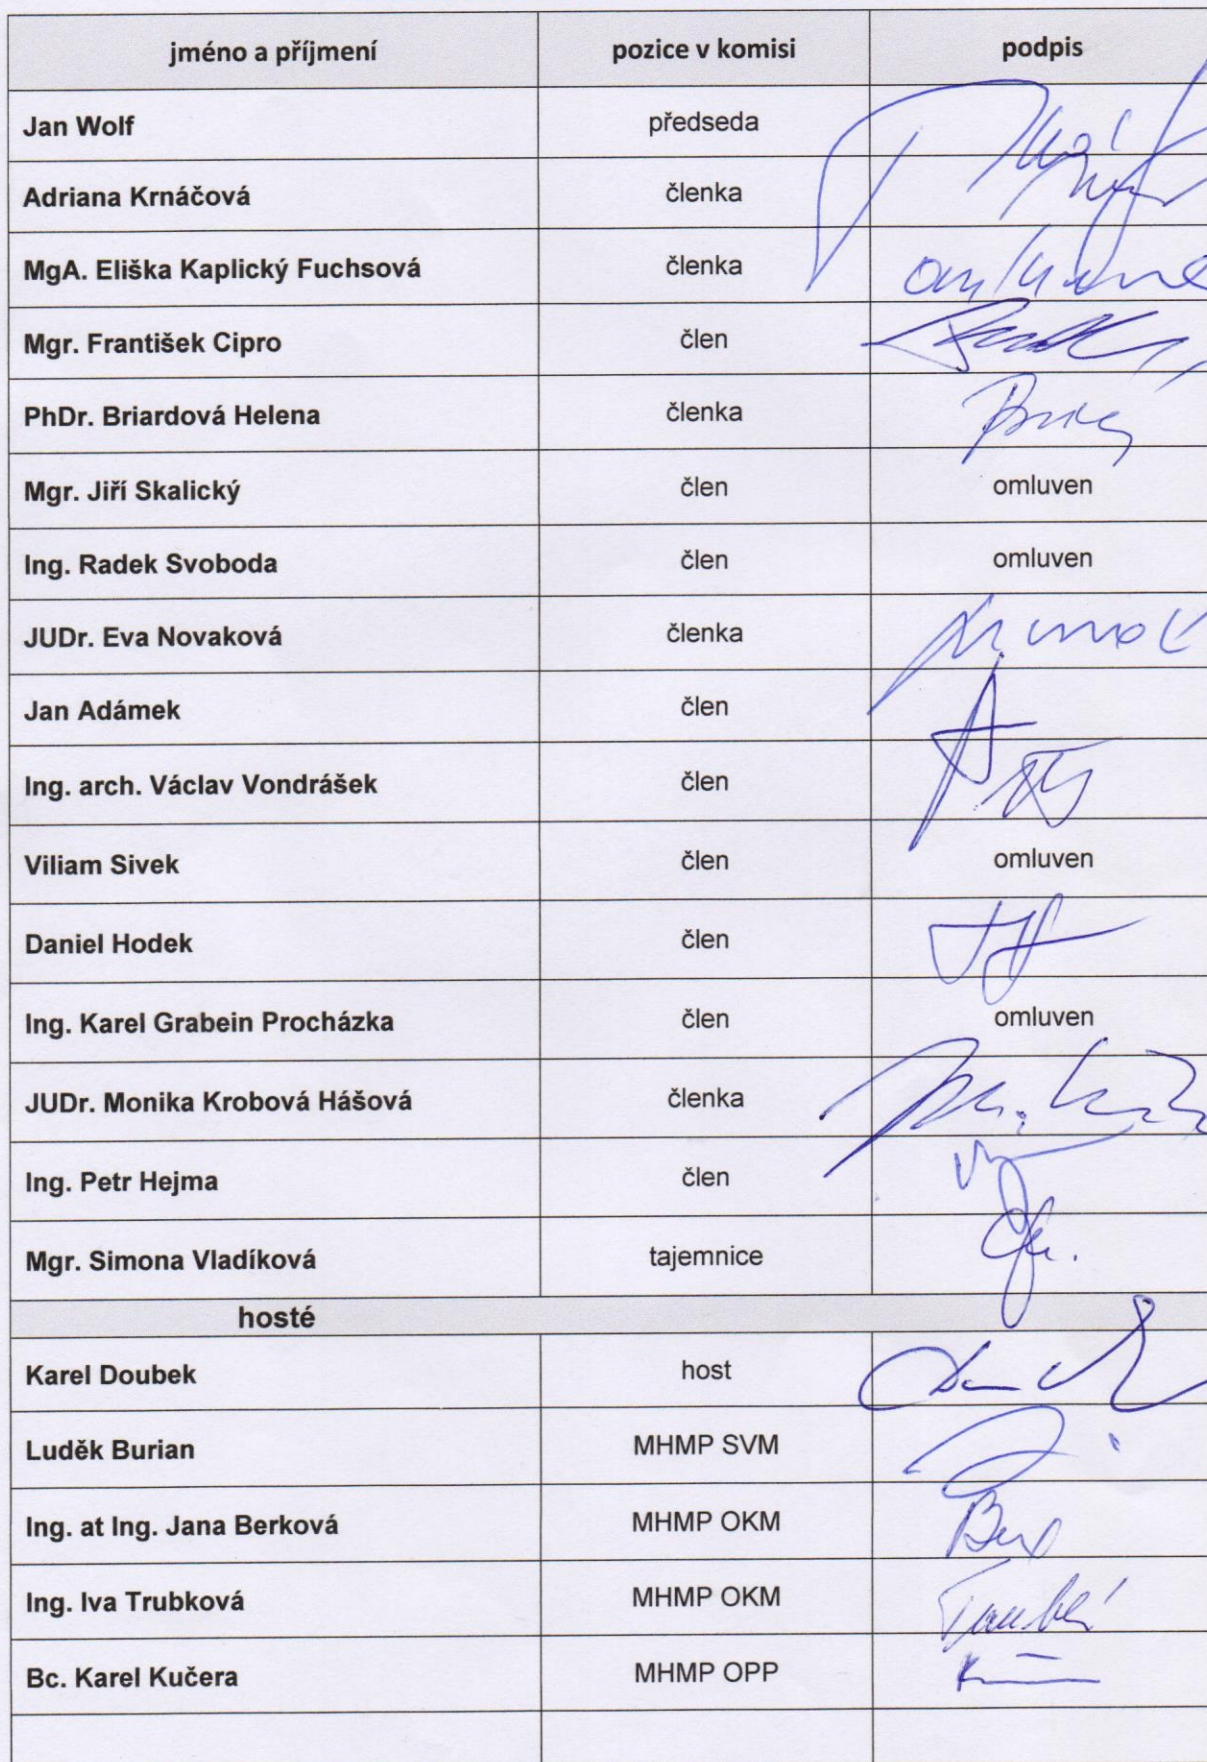 jméno a příjmení pozice v komisi podpis
Jan Wolf předseda
Adriana Krnáčová členka
MgA. Eliška Kaplický Fuchsová členka
Mgr. František Cipro člen
PhDr. Briardová Helena členka
Mgr. Jiří Skalický člen omluven
Ing. Radek Svoboda člen omluven
JUDr. Eva Novaková členka
Jan Adámek člen
Ing. arch. Václav Vondrášek člen
Viliam Sivek člen omluven
Daniel Hodek člen
Ing. Karel Grabein Procházka člen omluven
JUDr. Monika Krobová Hášová členka
Ing. Petr Hejma člen
Mgr. Simona Vladíková tajemnice
hosté
Karel Doubek host
Luděk Burian MHMP SVM
Ing. at Ing. Jana Berková MHMP OKM
Ing. Iva Trubková MHMP OKM
Bc. Karel Kučera MHMP OPP